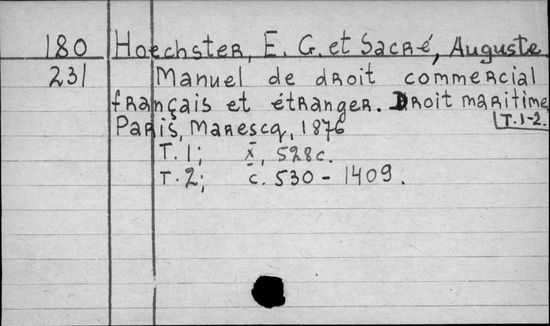 180 Hoechster, E. G. et Sacré, Auguste.
231 Manuel de droit commercial
français et étranger. Droit maritime
Paris, Marescq, 1876 T.1-2.
T.1; x̄, 528c.
T.2; c. 530 - 1409.